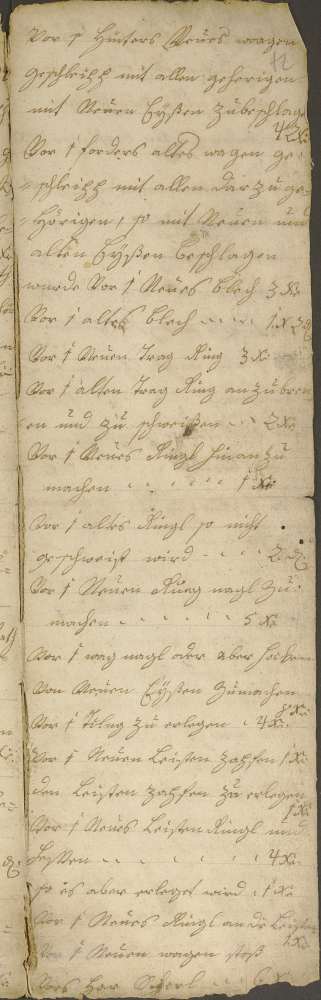 Vor 1 hinters Neües waagen
12
geschleipf mit allen gehörigen
mit Neüen Eyßen zubeschlagen
Vor 1 forders altes wagen ge-
schleipf mit allen darzu ge-
hörigen, so mit Neüen und
alten Eyßen beschlagen
wurde Vor 1 Neües blech 3 X:
Vor 1 altes blech 1 X
Vor 1 Neüen Trag Ring 3 X:
Vor 1 alten Trag Ring anzu
en und zu schweißen 2 X:
Vor 1 Neües Ringl hinanzu
machen 1 X:
Vor 1 altes Ringl so nicht
geschweist wird 2
Vor 1 Neüen nagl zu
machen 5 X:
Vor 1 nagl oder aber
Von Neüen Eyßen zumachen
8 X:
Vor 1 zu erlegen 4 X:
Vor 1 Neüen Leisten zapfen 1 X:
den Leisten zapfen zu erlegen
1 X:
Vor 1 Neües Leisten Ringl und
4 X:
so es aber erleget wird 1 X:
Vor 1 Neües Ringl an de Leisten
Vor 1 Neüen wagen stoß